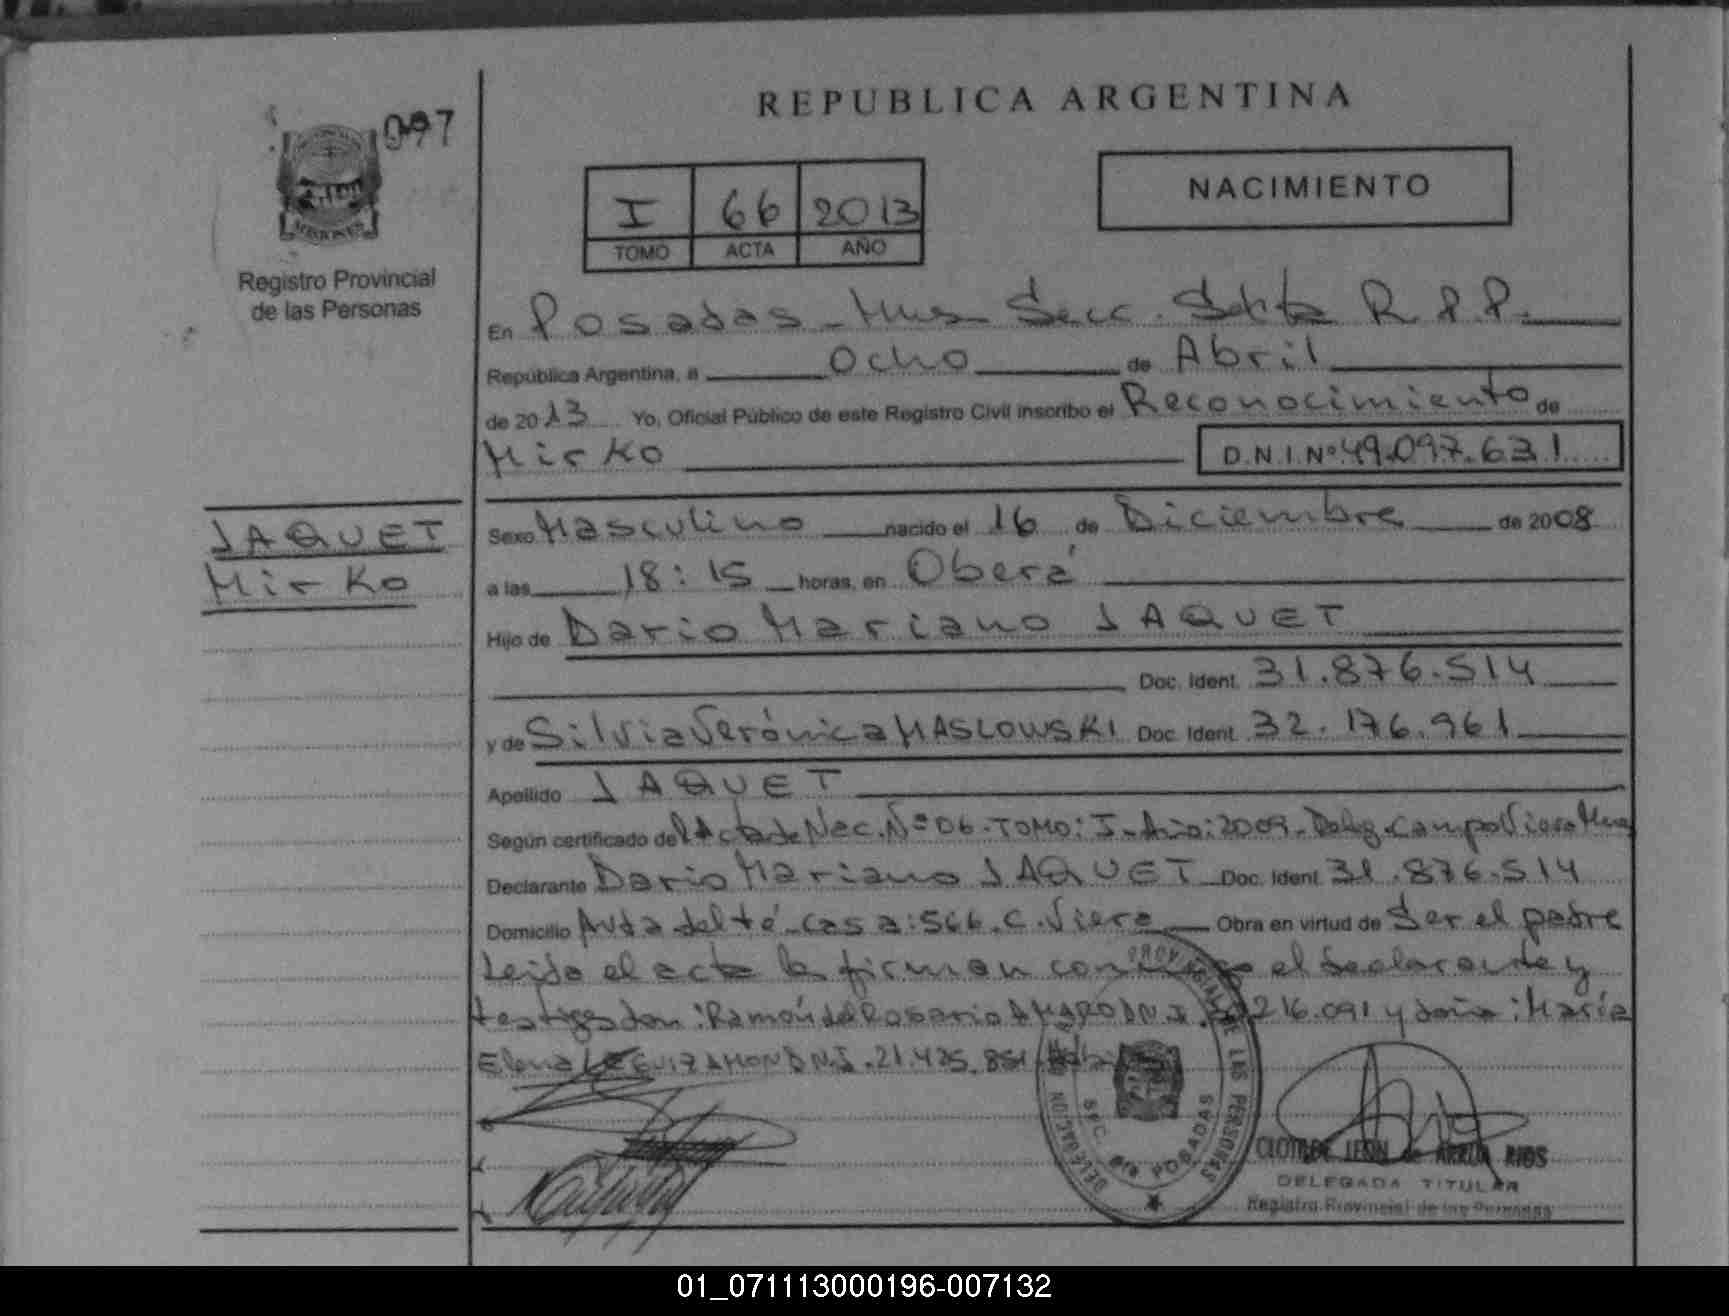 REPUBLICA ARGENTINA
097
MISIONES
Registro Provincial
de las Personas
I 66 2013
TOMO ACTA AÑO
NACIMIENTO
En Posadas - Mnes Secc. R.P.P.
República Argentina, a Ocho de Abril
de 2013 Yo, Oficial Público de este Registro Civil inscribo el Reconocimiento de
Mirko D.N.I.Nº 49.097.631
JAQUET
Mirko
Sexo Masculino nacido el 16 de Diciembre de 2008
a las 18:15 horas, en Oberá
Hijo de Dario Mariano JAQUET
Doc. Ident. 31.876.514
y de Silvia Verónica MASLOWSKI Doc. Ident. 32.176.961
Apellido JAQUET
Según certificado del Acta de Nac. Nº 06 - TOMO: I - Año: 2009 - Deleg. Campo Viera Mnes
Declarante Dario Mariano JAQUET Doc. Ident. 31.876.514
Domicilio Avda del té - casa: 566 - C. Viera Obra en virtud de Ser el padre
Leida el acta la firman conmigo el declarante y
testigos don: Ramón del Rosario AMARO D.N.I. 216.091 y doña: María
Elena LEGUIZAMON D.N.I. 21.435.851
DELEGACION PROVINCIAL DE LAS PERSONAS
SEC. 6ta POSADAS
CLOTILDE LEON de RIOS
DELEGADA TITULAR
Registro Provincial de las Personas
01_071113000196-007132